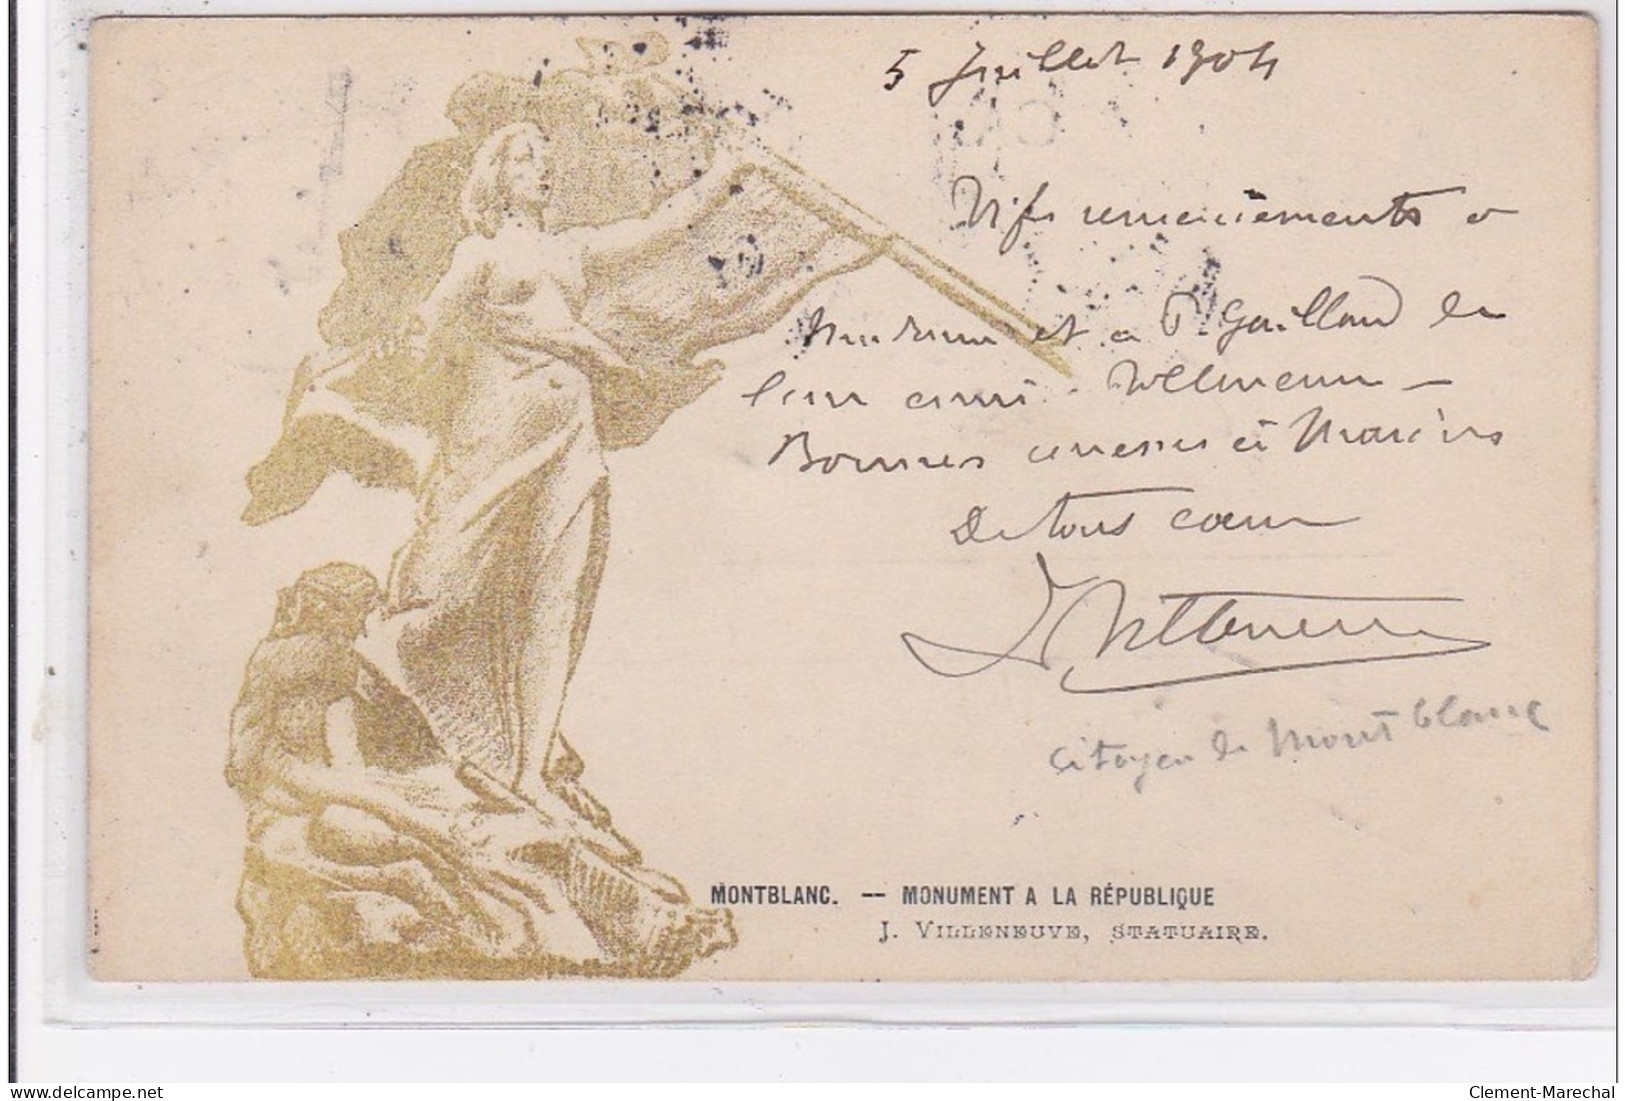 5 Juillet 1904
Vifs remerciements a
Madame et a P. Gaillard de
leur ami
Bonnes a Marius
De tous cœur
citoyen de Montblanc
MONTBLANC. — MONUMENT A LA RÉPUBLIQUE
J. VILLENEUVE, STATUAIRE.
www.delcampe.net
Clement-Marechal